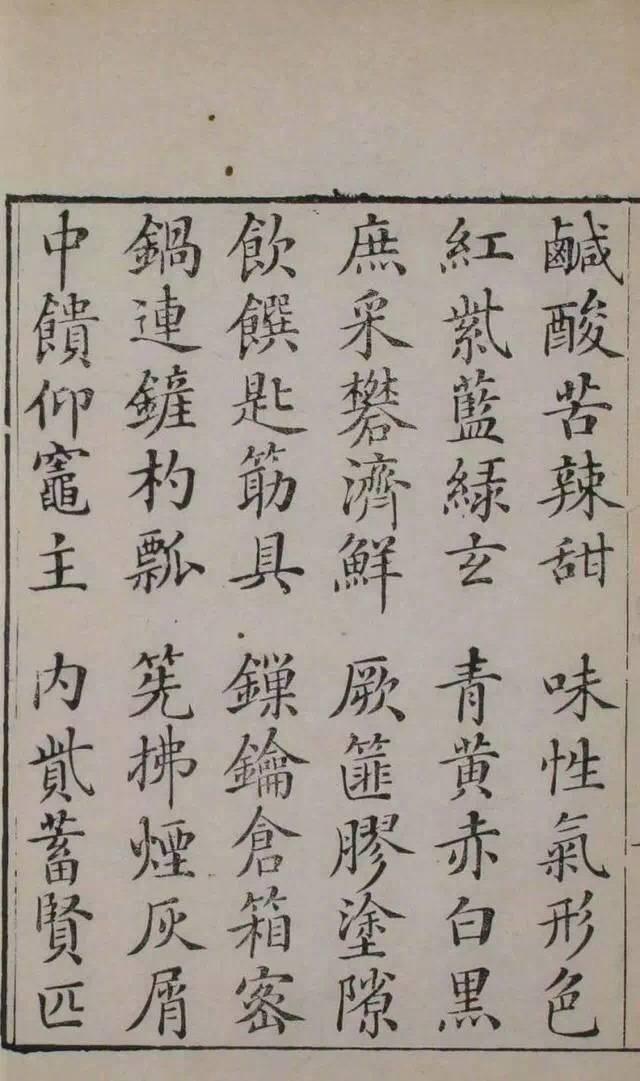 鹹酸苦辣甜　味性氣形色
紅紫藍緑玄　青黄赤白黒
庶采礬濟鮮　厥篚膠塗隙
飲饌匙筯具　鏁鑰倉箱密
鍋連鏟杓瓢　筅拂煙灰屑
中饋仰竈主　内貳蓄賢匹